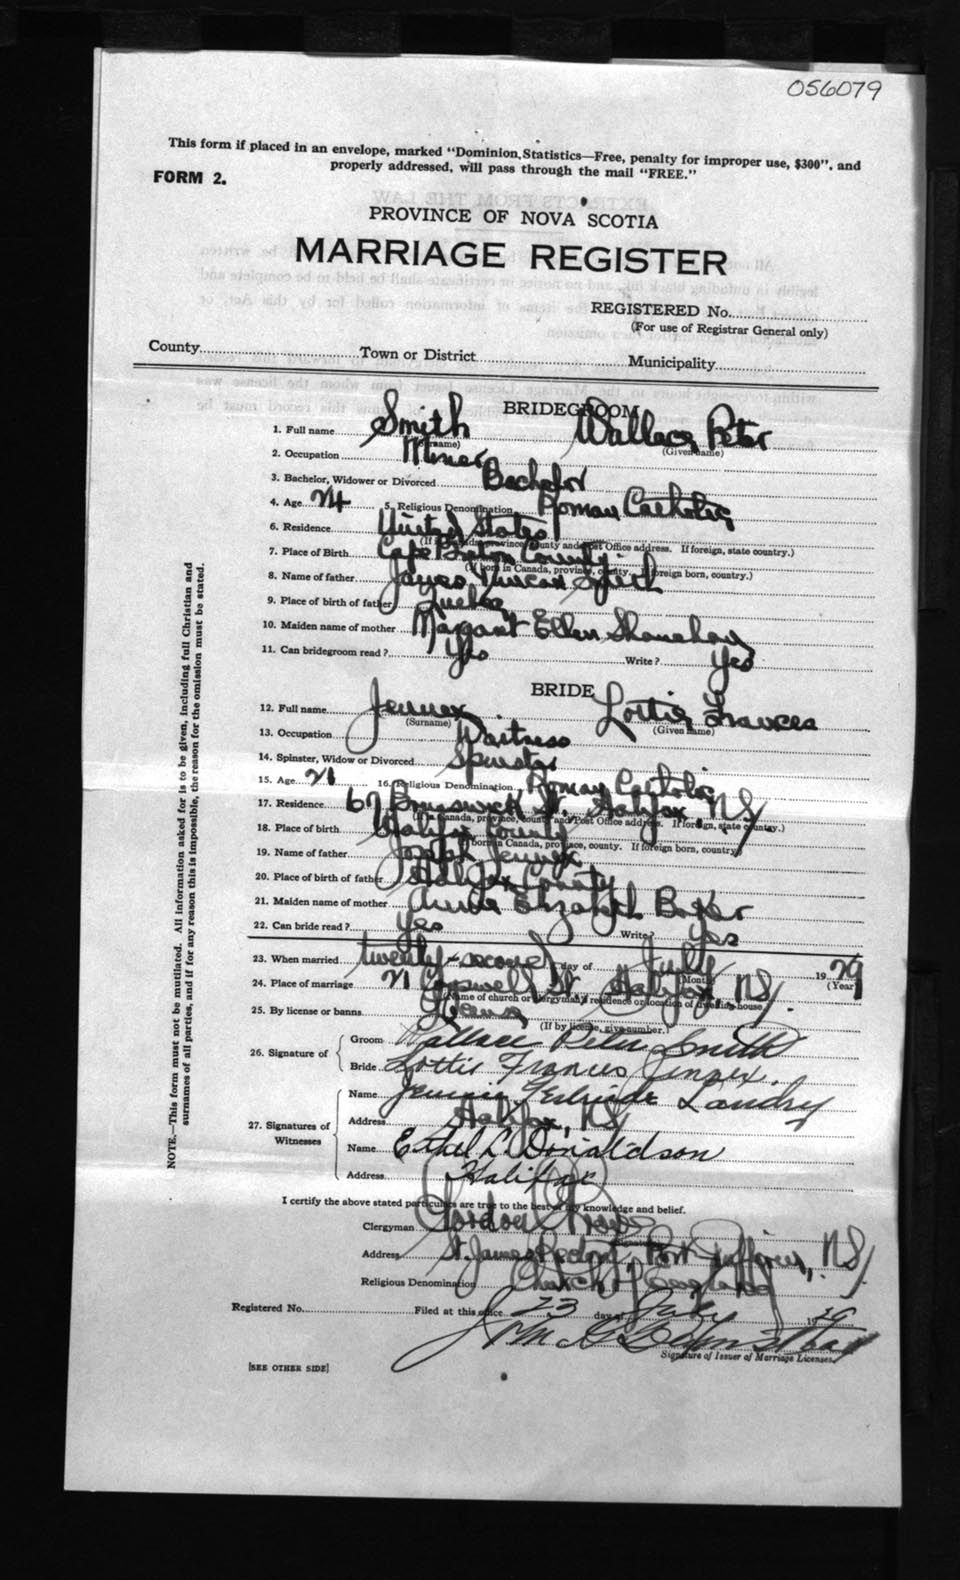 056079
This form if placed in an envelope, marked "Dominion Statistics—Free, penalty for improper use, $300", and
properly addressed, will pass through the mail "FREE."
FORM 2.
PROVINCE OF NOVA SCOTIA
MARRIAGE REGISTER
REGISTERED No.
(For use of Registrar General only)
County Town or District Municipality
BRIDEGROOM
1. Full name Smith Wallace Peter
(Surname) (Given name)
2. Occupation Miner
3. Bachelor, Widower or Divorced Bachelor
4. Age 24 5. Religious Denomination Roman Catholic
6. Residence United States
(If in Canada, province, county and Post Office address. If foreign, state country.)
7. Place of Birth Cape Breton County
(If born in Canada, province, county. If foreign born, country.)
8. Name of father James Duncan Smith
9. Place of birth of father Quebec
10. Maiden name of mother Margaret Ellen Shanahan
11. Can bridegroom read? Yes Write? Yes
BRIDE
12. Full name Jennex Lottie Frances
(Surname) (Given name)
13. Occupation Waitress
14. Spinster, Widow or Divorced Spinster
15. Age 21 16. Religious Denomination Roman Catholic
17. Residence 67 Brunswick St. Halifax, NS
(If in Canada, province, county and Post Office address. If foreign, state country.)
18. Place of birth Halifax County
(If born in Canada, province, county. If foreign born, country)
19. Name of father Joseph Jennex
20. Place of birth of father Halifax County
21. Maiden name of mother Annie Elizabeth Baker
22. Can bride read? Yes Write? Yes
23. When married twenty-second day of July 1929
(Month) (Year)
24. Place of marriage 21 Cogswell St. Halifax, NS.
(Name of church or clergyman's residence or location of dwelling house)
25. By license or banns License
(If by license, give number.)
26. Signature of
Groom Wallace Peter Smith
Bride Lottie Frances Jennex.
27. Signatures of
Witnesses
Name Jennie Gertrude Landry
Address Halifax, NS
Name Ethel L. Donaldson
Address Halifax
I certify the above stated particulars are true to the best of my knowledge and belief.
Clergyman Gordon
Address St. James Rectory, Port Dufferin, NS.
Religious Denomination Church of England
Registered No. Filed at this office 23 day of July 19
Signature of Issuer of Marriage Licenses
[SEE OTHER SIDE]
NOTE.—This form must not be mutilated. All information asked for is to be given, including full Christian and
surnames of all parties, and if for any reason this is impossible, the reason for the omission must be stated.